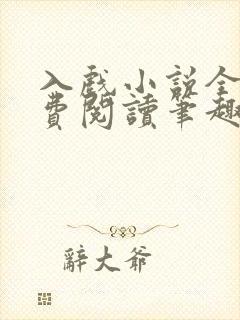 入戲小說全
費閱讀筆趣
辭大爺